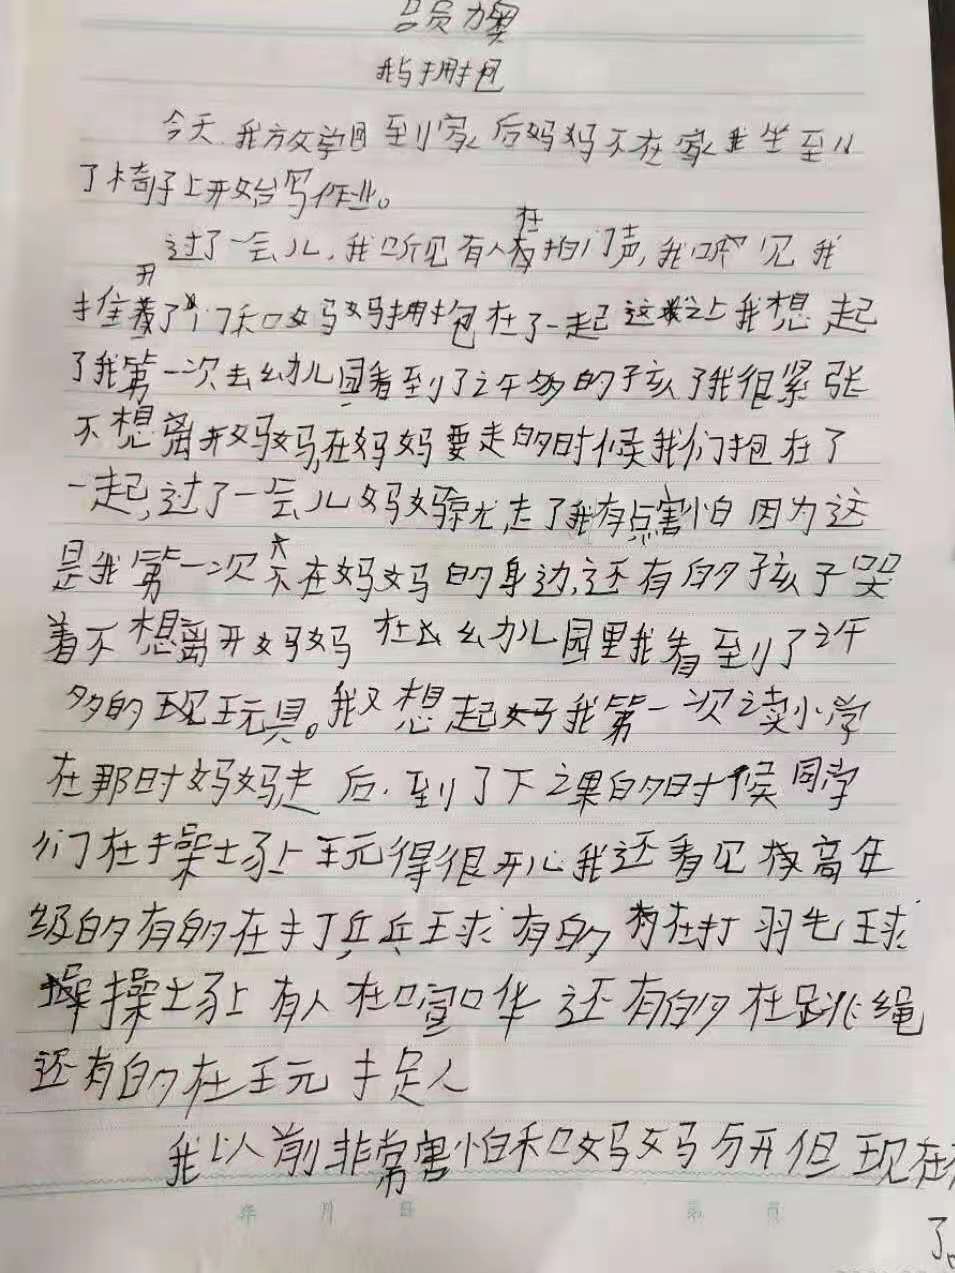 我与拥抱
今天.我放学回到家后妈妈不在家我坐到
了椅子上开始写作业。
在
过了一会儿,我听见有人拍门声,我听见我
开
推了门和妈妈拥抱在了一起这我想起
了我第一次去幼儿园看到了许多的孩了我很紧张
不想离开妈妈,在妈妈要走的时候我们抱在了
一起,过了一会儿妈妈就走了我有点害怕因为这
是我第一次不在妈妈的身边,还有的孩子哭
着不想离开妈妈在幼儿园里我看到了许
多的玩具。我又想起我第一次读小学
在那时妈妈走后.到了下课的时候同学
们在操场上玩得很开心我还看见高年
级的有的在打乒乓球有的在打羽毛球
操场上有人在喧哗还有的在跳绳
还有的在玩捉人
我以前非常害怕和妈妈分开但现在
了。
年 月 日 第 页